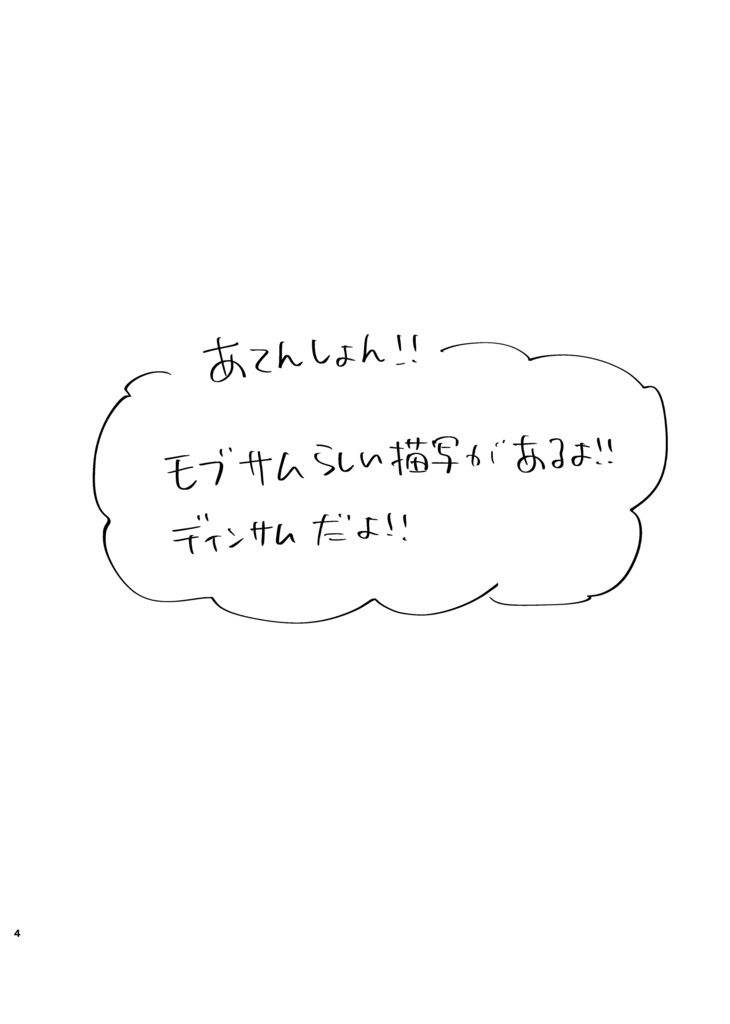 あてんしょん!!
モブサムらしい描写があるよ!!
ディンサムだよ!!
4